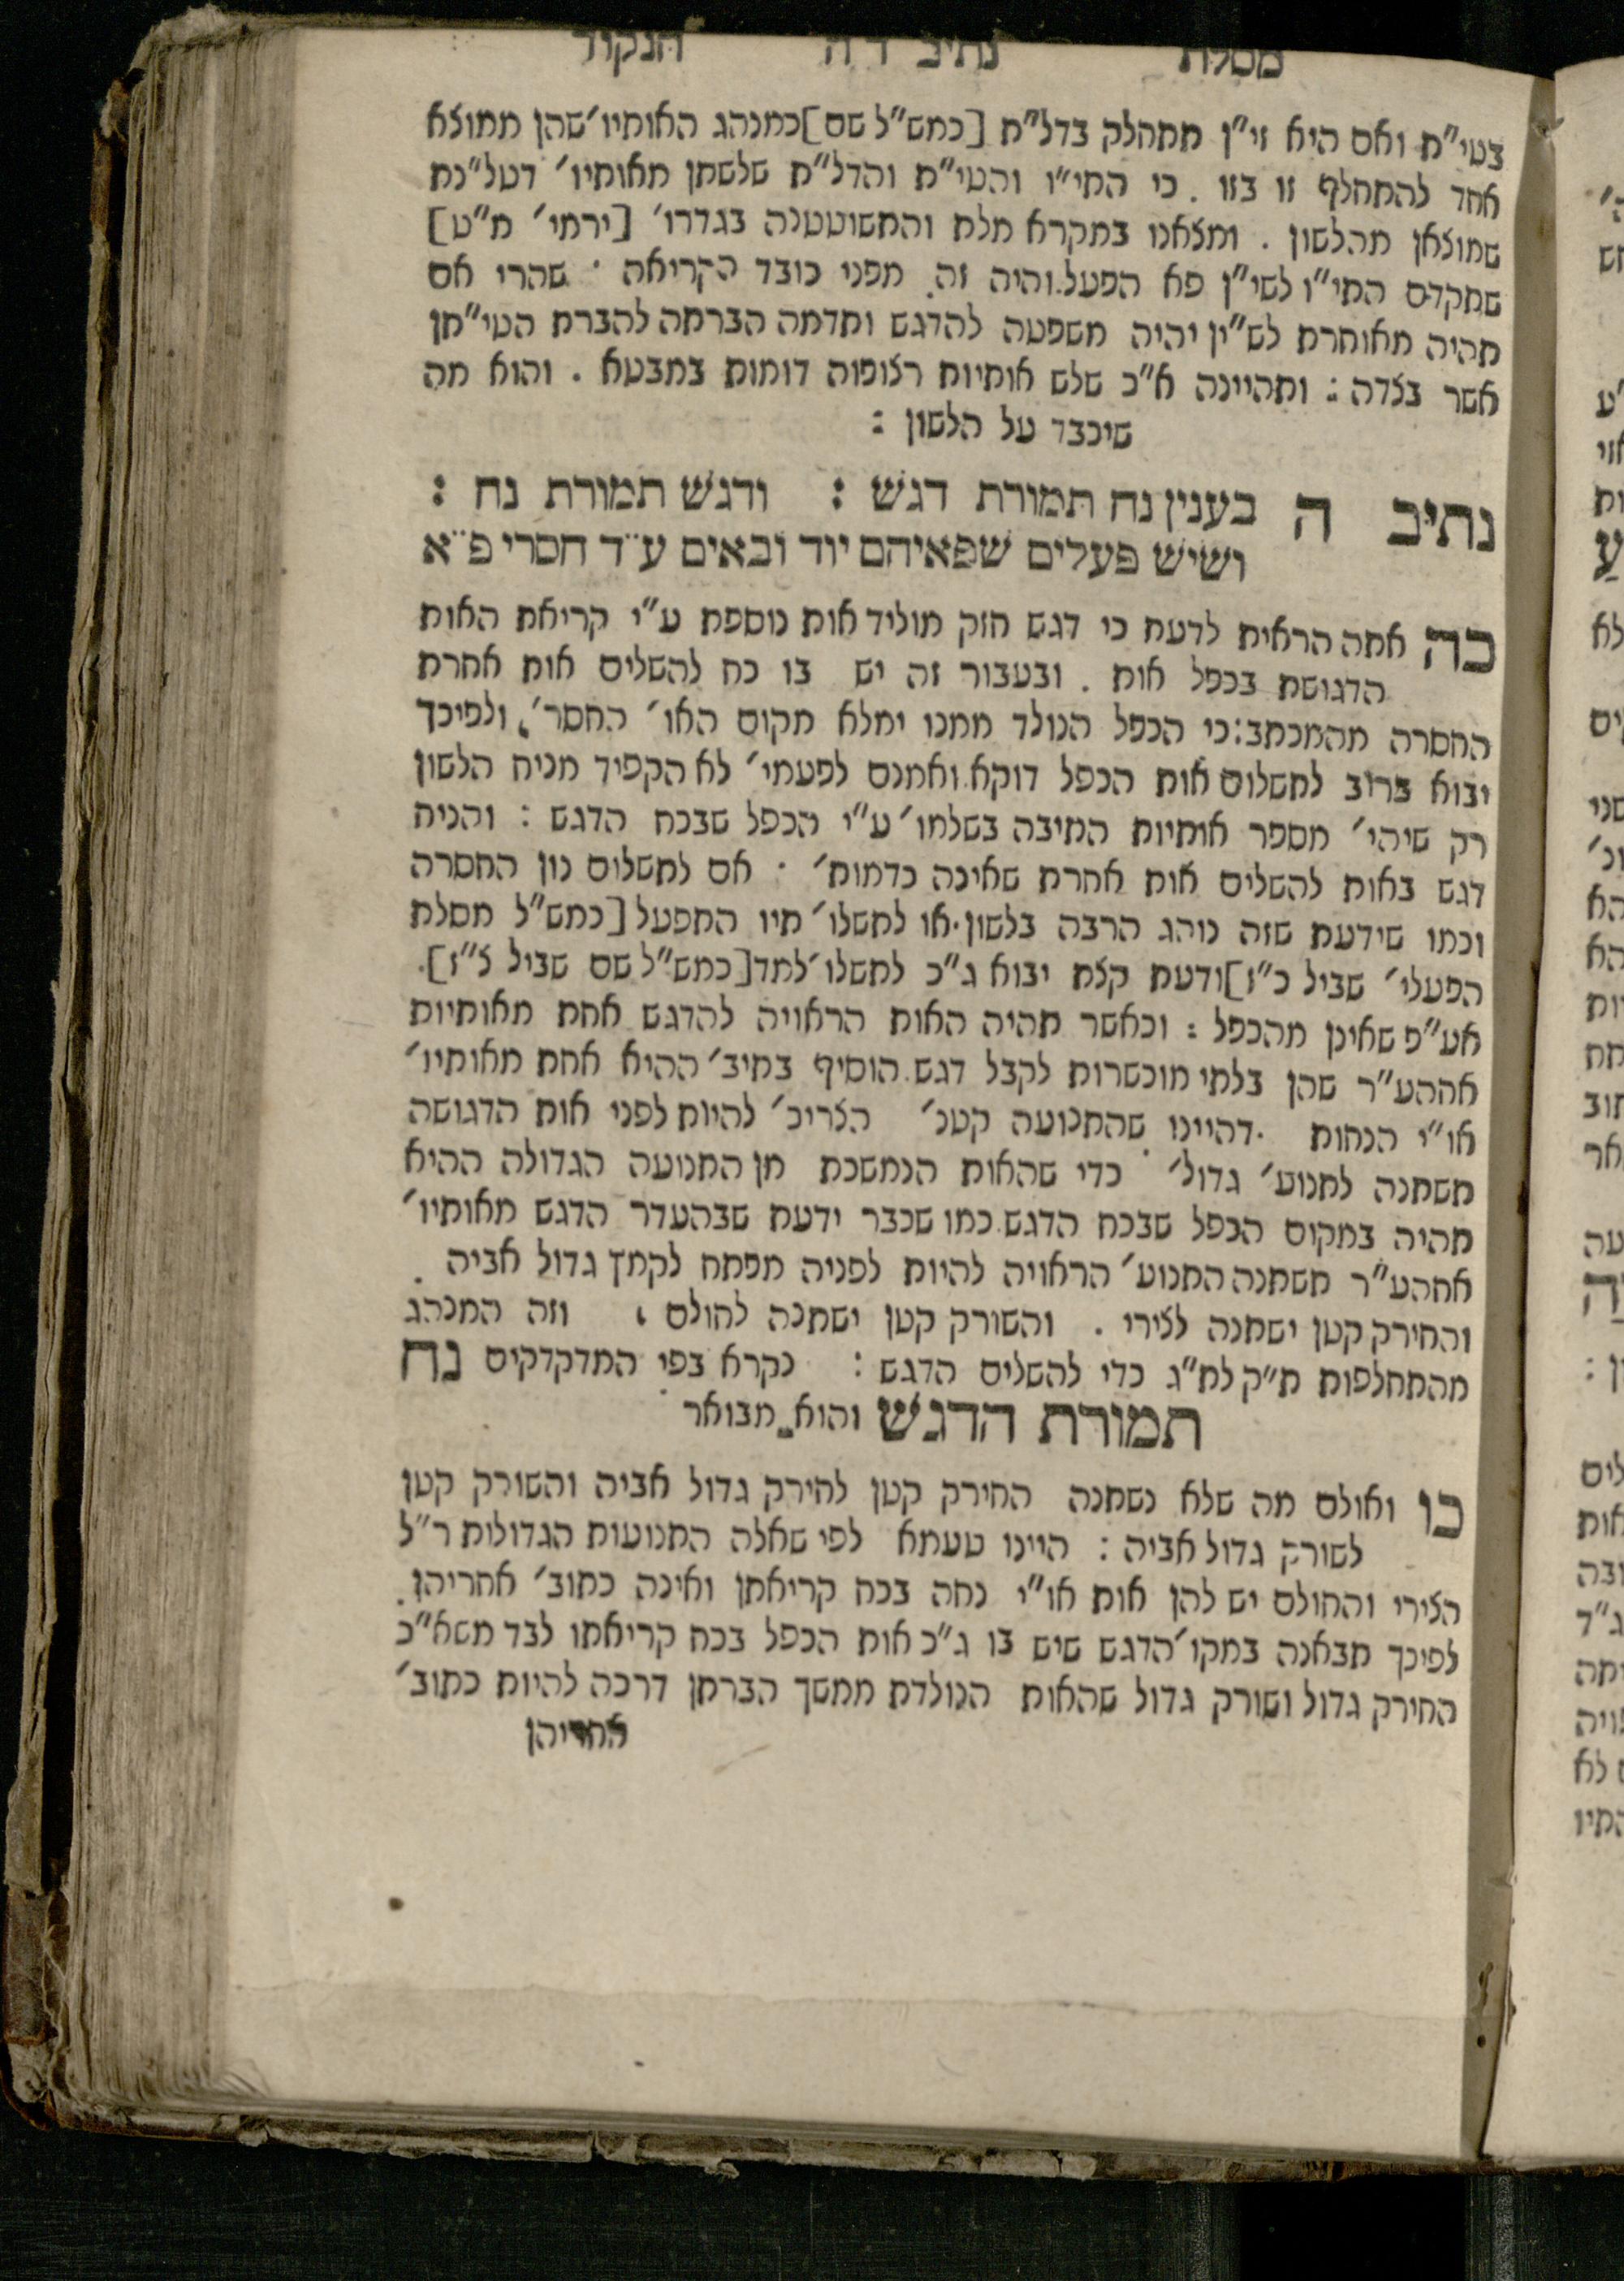 מסלת נתיב ד ה הנקוד
בטי״ת ואם היא זי״ן תתחלק בדל״ת [כמש״ל שם] כמנהג האותיו׳ שהן ממוצא
אחד להתחלף זו בזו . כי התי״ו והטי״ת והדל״ת שלשתן מאותיו׳ דטל״נת
שמוצאן מהלשון . ומצאנו במקרא מלת והתשוטטנה בגדרו׳ [ירמי׳ מ״ט]
שתקדם התי״ו לשי״ן פא הפעל. והיה זה מפני כובד הקריאה · שהרי אם
תהיה מאוחרת לש״ין יהיה משפטה להדגש ותדמה הברתה להברת הטי״תן
אשר בצדה : ותהיינה א״כ שלש אותיות רצופות דומות במבטא . והוא מה
שיכבד על הלשון :
נתיב ה בענין נח תמורת דגש : ודגש תמורת נח :
ושיש פעלים שפאיהם יוד ובאים ע״ד חסרי פ״א
כה אתה הראית לדעת כי דגש חזק מוליד אות נוספת ע״י קריאת האות
הדגושת בכפל אות . ובעבור זה יש בו כח להשלים אות אחרת
החסרה מהמכתב: כי הכפל הנולד ממנו ימלא מקום האו׳ החסר׳, ולפיכך
יבוא ברוב לתשלום אות הכפל דוקא. ואמנם לפעמי׳ לא הקפיד מניח הלשון
רק שיהי׳ מספר אותיות התיבה בשלמו׳ ע״י הכפל שבכח הדגש : והניח
דגש באות להשלים אות אחרת שאינה כדמות׳ · אם לתשלום נון החסרה
וכמו שידעת שזה נוהג הרבה בלשון. או לתשלו׳ תיו התפעל [כמש״ל מסלת
הפעלי׳ שביל כ״ז] ודעת קצת יבוא ג״כ לתשלו׳ למד [כמש״ל שם שביל צ״ז].
אע״פ שאינן מהכפל : וכאשר תהיה האות הראויה להדגש אחת מאותיות
אההע״ר שהן בלתי מוכשרות לקבל דגש. הוסיף בתיב׳ ההיא אחת מאותיו׳
או״י הנחות . דהיינו שהתנועה קטנ׳ הצריכ׳ להיות לפני אות הדגושה
תשתנה לתנוע׳ גדול׳ כדי שהאות הנמשכת מן התנועה הגדולה ההיא
תהיה במקום הכפל שבכח הדגש. כמו שכבר ידעת שבהעדר הדגש מאותיו׳
אחהע״ר תשתנה התנוע׳ הראויה להיות לפניה מפתח לקמץ גדול אביה .
והחירק קטן ישתנה לצירי . והשורק קטן ישתנה לחולם , וזה המנהג
מהתחלפות ת״ק לת״ג כדי להשלים הדגש : נקרא בפי המדקדקים נח
תמורת הדגש והוא מבואר
כו ואולם מה שלא נשתנה החירק קטן לחירק גדול אביה והשורק קטן
לשורק גדול אביה : היינו טעמא לפי שאלה התנועות הגדולות ר״ל
הצירי והחולם יש להן אות או״י נחה בכח קריאתן ואינה כתוב׳ אחריהן.
לפיכך תבאנה במקו׳ הדגש שיש בו ג״כ אות הכפל בכח קריאתו לבד משא״כ
החירק גדול ושורק גדול שהאות הנולדת ממשך הברתן דרכה להיות כתוב׳
אחריהן